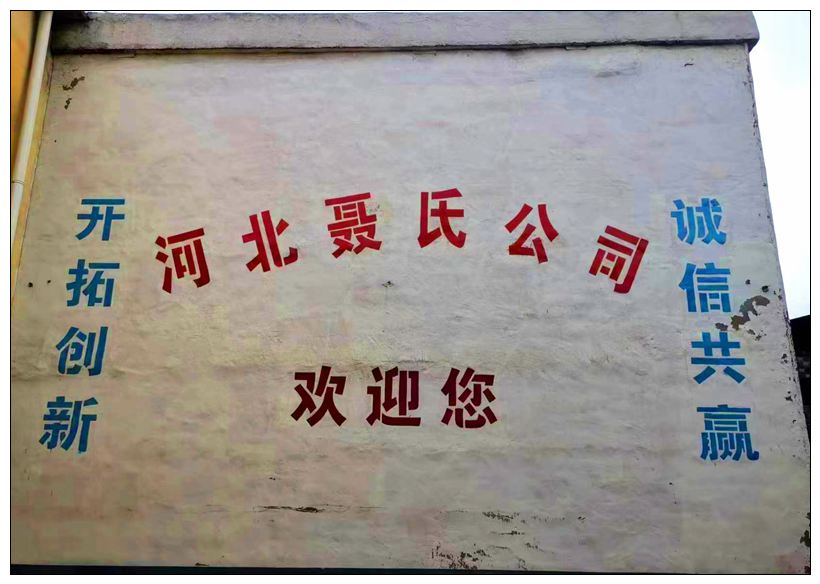 河北聂氏公司
欢迎您
开拓创新
诚信共赢